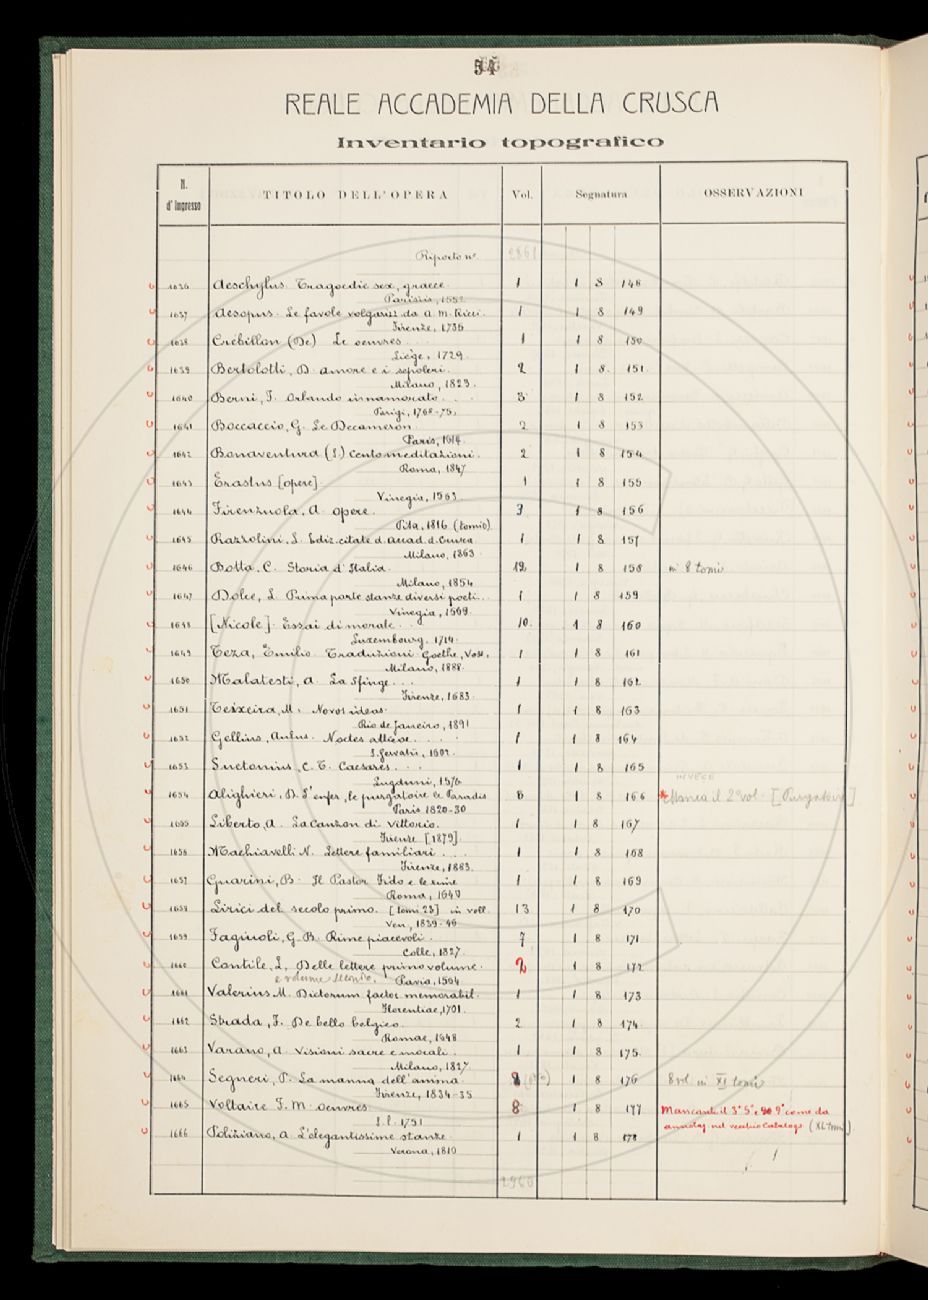 54
REALE ACCADEMIA DELLA CRUSCA
Inventario topografico
N. d'Ingresso TITOLO DELL'OPERA Vol. Segnatura OSSERVAZIONI
Riporto nº 2861
1636 Aeschylus. Tragoedie sex, graece. 1 1 8 148
Parisiis, 1552
1637 Aesopus. Le favole volgarizz. da A. M. Ricci. 1 1 8 149
Firenze, 1736
1638 Crébillon (De) Le oeuvres . . . 1 1 8 150
Liège, 1729.
1639 Bertolotti, D. Amore e i sepolcri. 2 1 8. 151
Milano, 1823.
1640 Berni, F. Orlando innamorato. . . 3 1 8 152
Parigi, 1768-75.
1641 Boccaccio, G. Le Decameron. 2 1 8 153
Paris, 1614.
1642 Bonaventura (S.) Cento meditazioni. 2 1 8 154
Roma, 1847
1643 Erastus [opere]. 1 1 8 155
Vinegia, 1563.
1644 Firenzuola, A. opere. 3 1 8 156
Pisa, 1816 (tomi)
1645 Razzolini, L. Ediz. citate d. Accad. d. Crusca. 1 1 8 157
Milano, 1863
1646 Botta, C. Storia d'Italia. 12 1 8 158 in 8 tomi
Milano, 1854
1647 Dolce, L. Prima parte stanze diversi poeti.. 1 1 8 159
Vinegia, 1569.
1648 [Nicole]. Essai di morale. . . 10. 1 8 160
Luxembourg. 1714.
1649 Teza, Emilio. Traduzioni. Goethe, Voss. 1 1 8 161
Milano, 1888.
1650 Malatesti, A. La Sfinge. . . 1 1 8 162
Firenze, 1683.
1651 Teixeira, M. Novos ideas. 1 1 8 163
Rio de Janeiro, 1891
1652 Gellius, Aulus. Noctes atticae. . . . 1 1 8 164
S. Gervasii, 1602.
1653 Suetonius, C. T. Caesares. . . . 1 1 8 165
Lugduni, 1576
invece
1654 Alighieri, D. L'enfer, le purgatoire le Paradis 1 8 166 * Manca il 2º vol. [Purgatorio]
Paris 1820-30
1655 Liberto, A. La Canzon di Vittorio. 1 1 8 167
Firenze [1879].
1656 Machiavelli N. Lettere familiari . . . 1 1 8 168
Firenze, 1883.
1657 Guarini, B. Il Pastor Fido e le rime 1 1 8 169
Roma, 1640
1658 Lirici del secolo primo. [tomi 23] in voll. 13 1 8 170
Ven., 1839-46
1659 Fagiuoli, G. B. Rime piacevoli. 7 1 8 171
Colle, 1827.
1660 Contile, L. Delle lettere primo volume. 2 1 8 172
e volume secondo. Pavia, 1564
1661 Valerius M. Dictorum factor. memorabil. 1 1 8 173
Florentiae, 1701.
1662 Strada, F. De bello belgico. 2 1 8 174
Romae, 1648
1663 Varano, A. Visioni sacre e morali. 1 1 8 175
Milano, 1827.
1664 Segneri, P. La manna dell'anima. 8 1 8 176 8 vol. in XI tomi
Firenze, 1834-35
1665 Voltaire F. M. oeuvres 8 1 8 177 Mancanti il 3º 5º e 9º come da
S. l. 1751 annotaz. nel vecchio Catalogo (XI tomi).
1666 Poliziano, A. L'elegantissime stanze. 1 1 8 178
Verona, 1810
2960